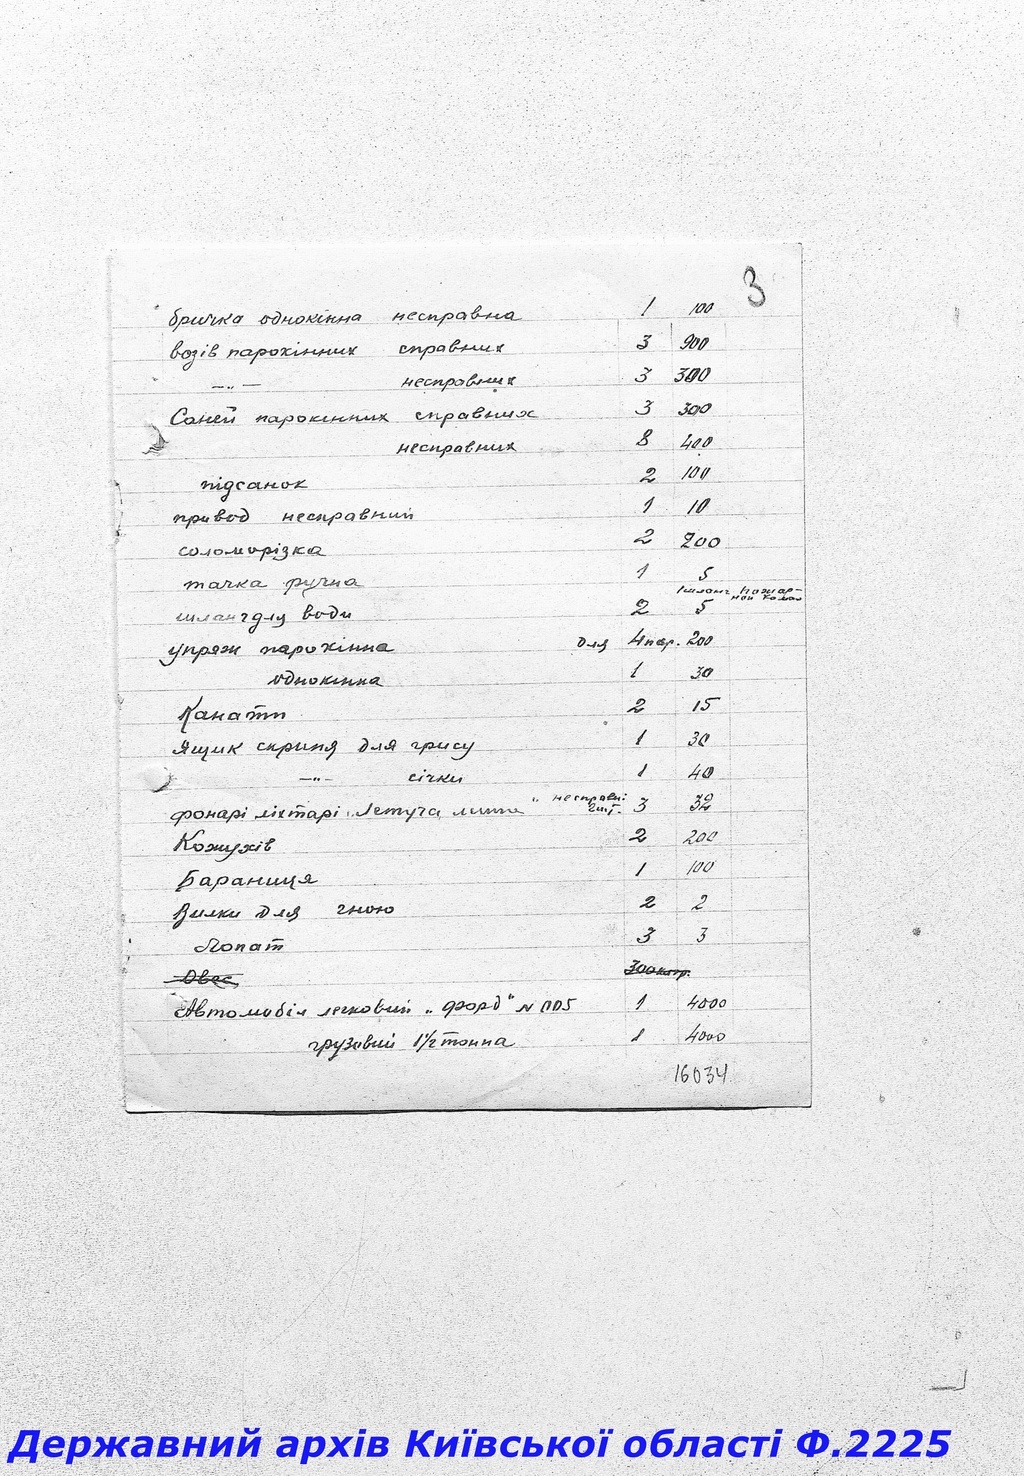 3
бричка однокінна несправна 1 100
возів парокінних справних 3 900
—„— несправних 3 300
Саней парокінних справних 3 300
несправних 8 400
підсанок 2 100
привод несправний 1 10
соломорізка 2 200
тачка ручна 1 5
1 шланг пожар-
ной
шланг для води 2 5
упряж парокінна для 4 пар. 200
однокінна 1 30
Канати 2 15
Ящик скриня для грису 1 30
—„— січки 1 40
фонарі ліхтарі „Летуча миша" несправні 3
Кожухів 2 200
Бараниця 1 100
Вилки для гною 2 2
Лопат 3 3
Овес 300 кгр.
Автомобіл легковий „Форд" N 1105 1 4000
грузовий 1 1/2 тонна 1 4000
16034
Державний архів Київської області Ф.2225